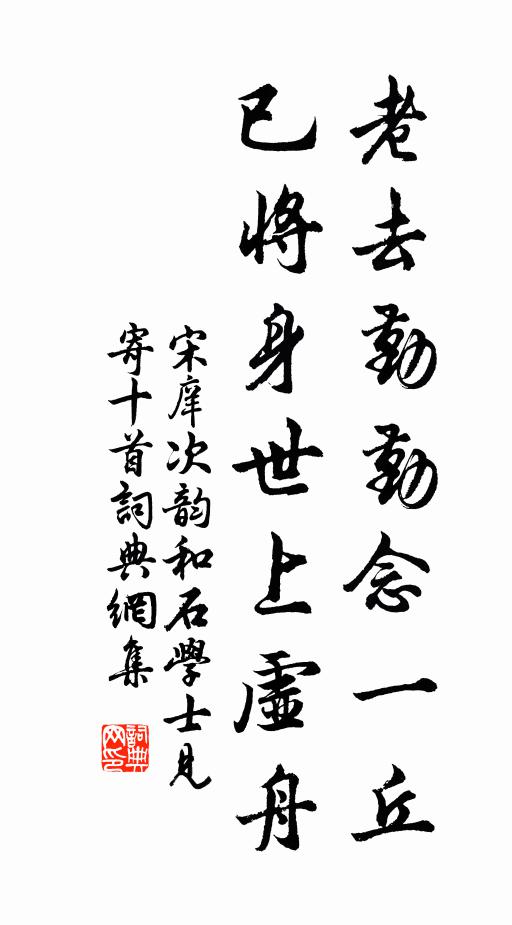 老去勤勤念一丘
已將身世上虛舟
宋庠次韵和石學士見
寄十首詞典網集
詞典
网印